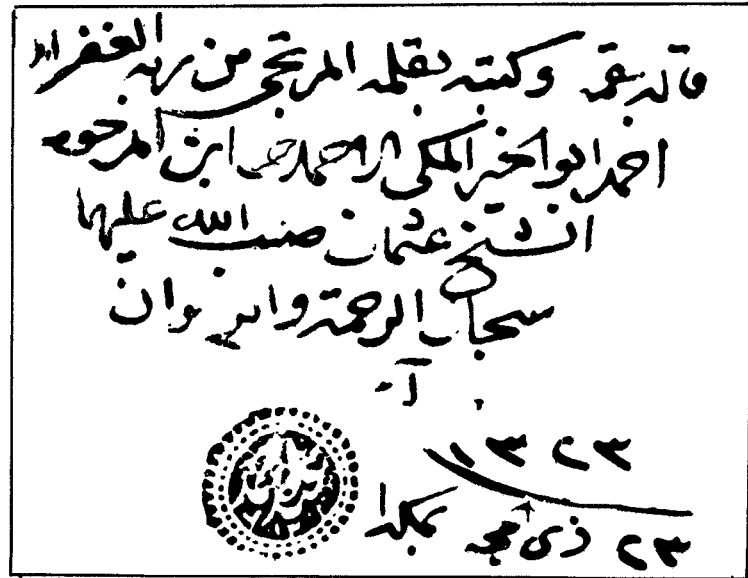 قاله بفمه وكتبه بقلمه المرتجى من ربه الغفران
احمد ابو الخير المكي الاحمدي ابن المرحوم
الشيخ عثمان صب الله عليهما
سحاب الرحمة والرضوان
١٣٢٣
٢٣ ذي حجه